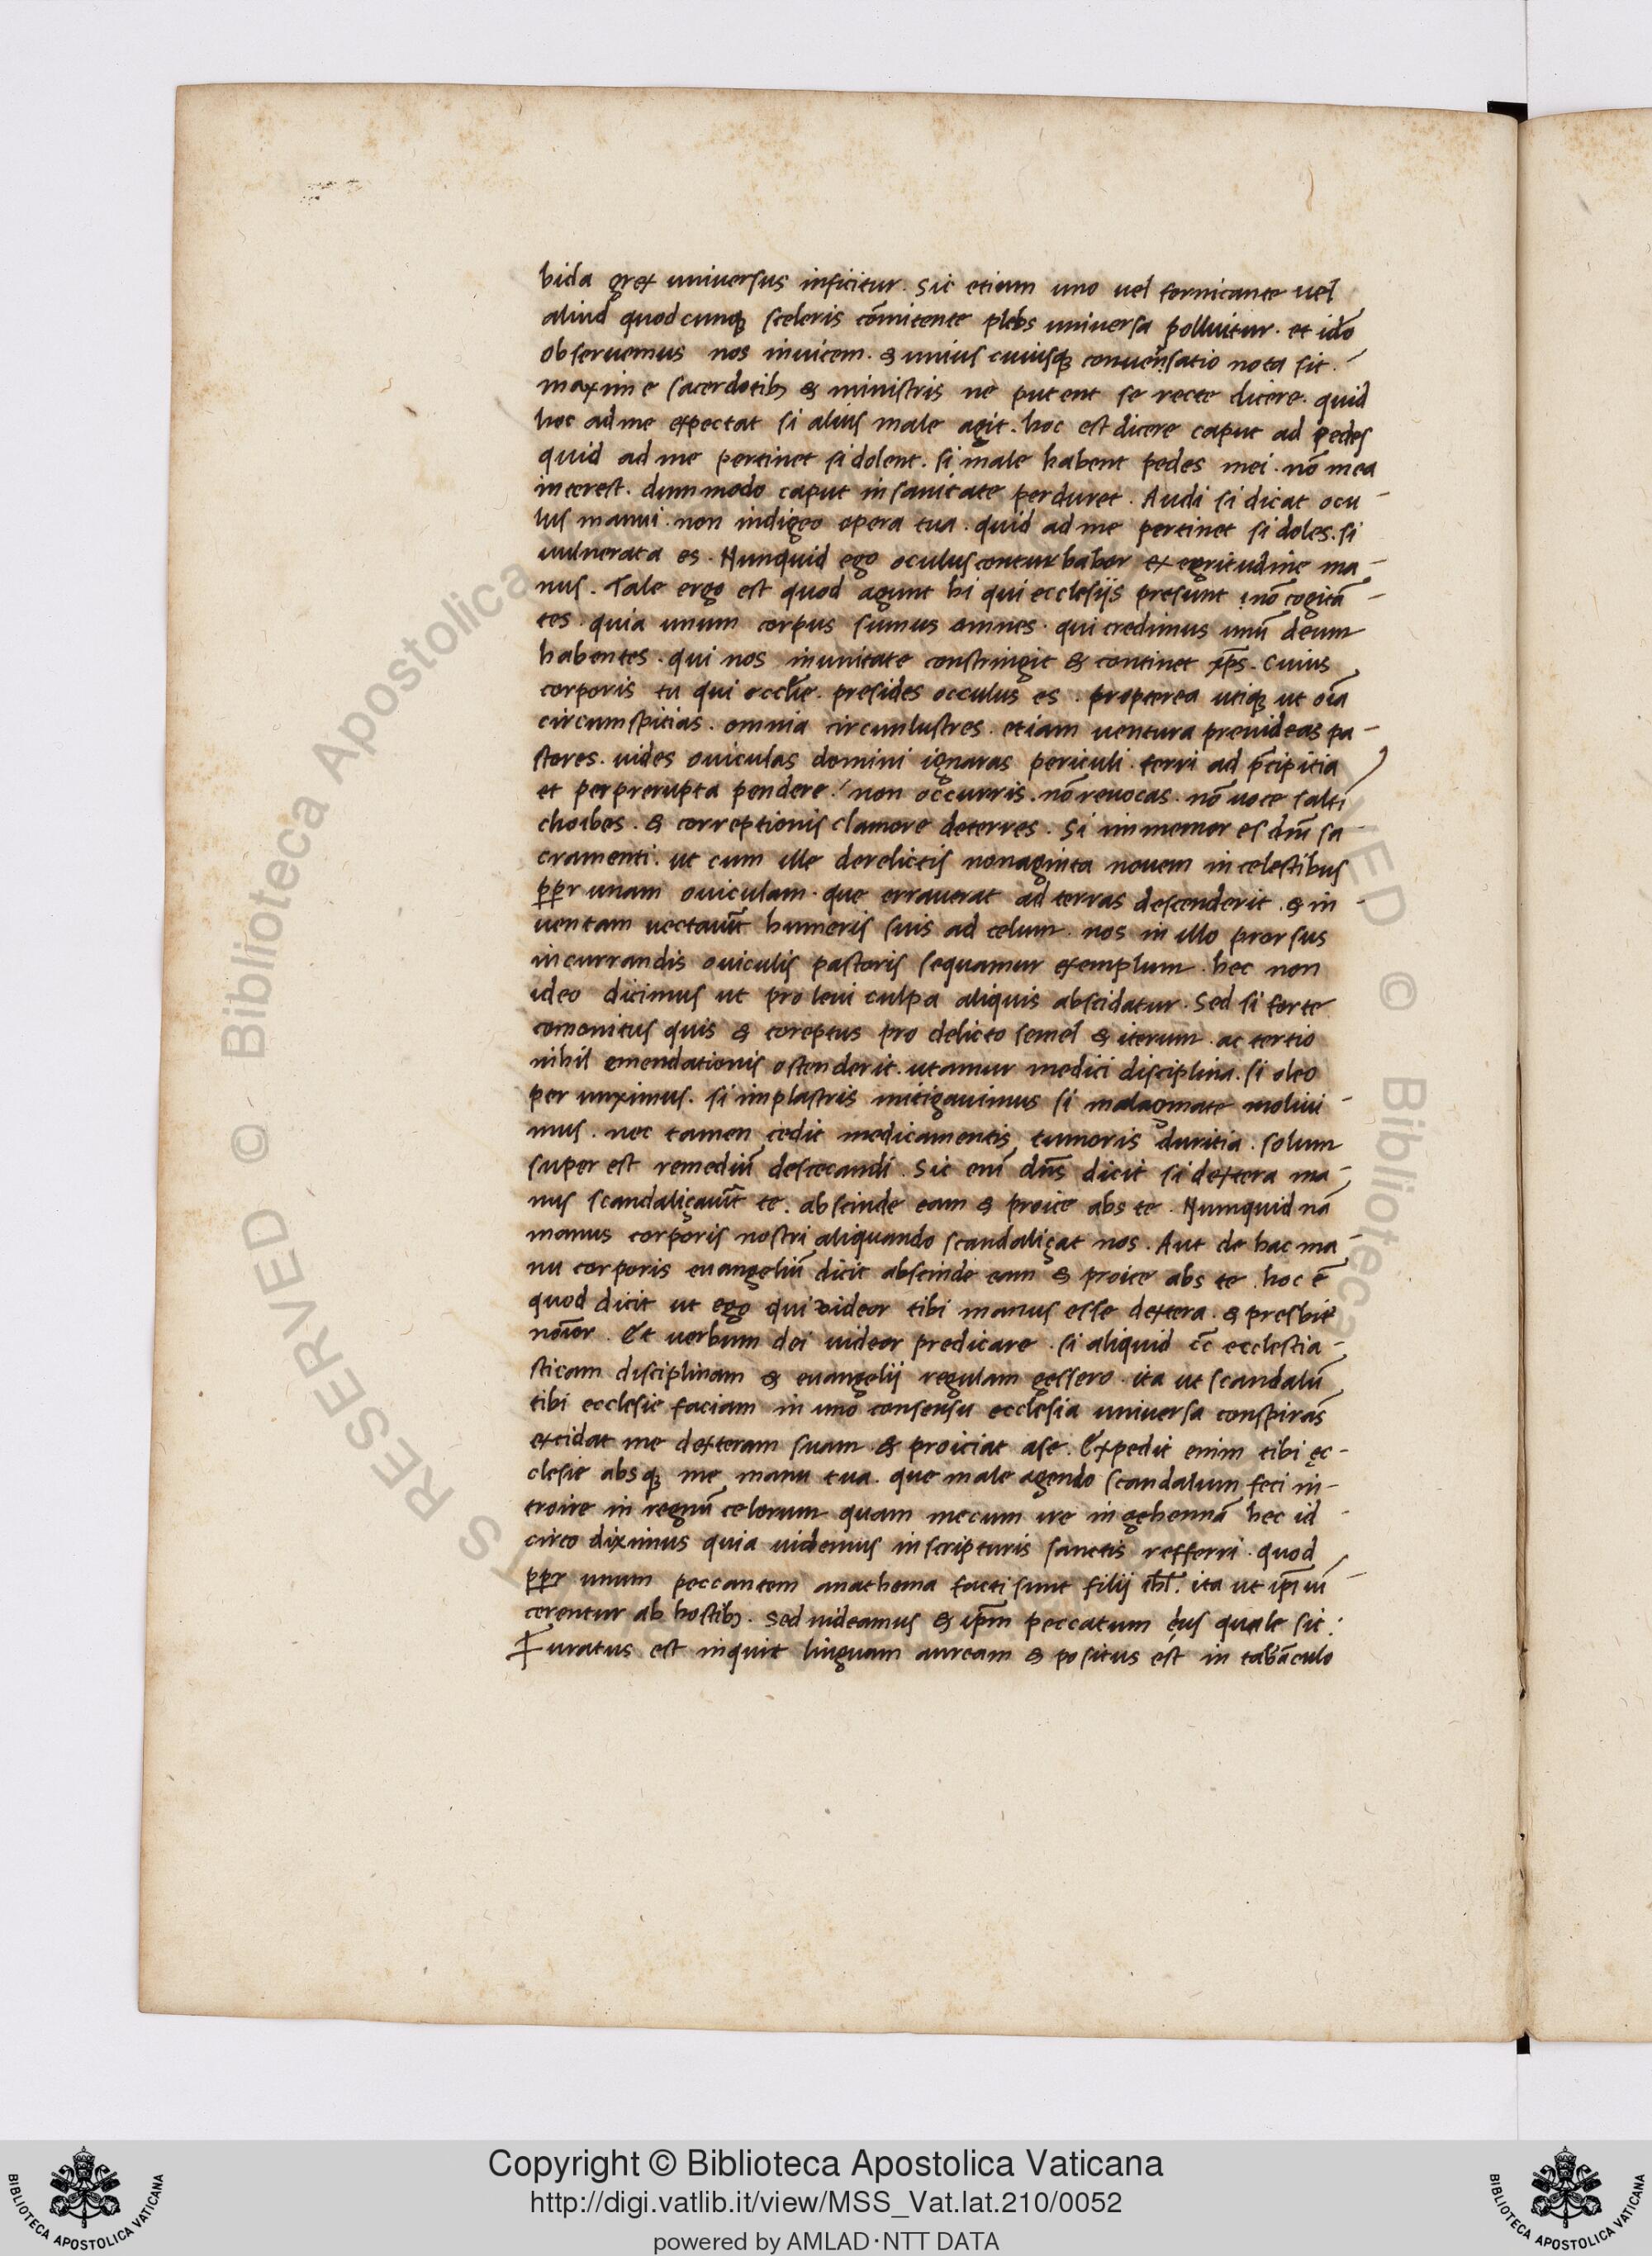 bida grex universus inficitur. Sic etiam uno uel fornicante uel
aliud quodcunqꝫ sceleris cōmitente plebs universa polluitur. et idō
observemus nos invicem. & unius cuiusqꝫ conversatio nota sit.
maxime sacerdotibꝫ & ministris ne putent se recte dicere. quid
hoc ad me expectat si alius male agit. hoc est dicere caput ad pedes
quid ad me pertinet si dolent. si male habent pedes mei. nō mea
interest. dummodo caput in sanitate perduret. Audi si dicat ocu-
lus manui. non indigeo opera tua. quid ad me pertinet si doles. si
uulnerata es. Nunquid ego oculus conturbabor ex egritudine ma-
nus. Tale ergo est quod agunt hi qui ecclesijs presunt nō cogitā-
tes. quia unum corpus sumus omnes. qui credimus unū deum
habentes. qui nos in unitate constringit & continet xp̄s. Cuius
corporis tu qui eccl̄ie. presides occulus es. propterea utiqꝫ ut oīa
circumspicias. omnia circumlustres. etiam ventura prouideas pa-
stores. uides oviculas domini ignaras periculi. ferri ad p̄cipitia
et per prerupta pendere. non occurris. nō revocas. nō uoce saltī
choibes. & correptionis clamore deterres. Si immemor es dn̄i sa-
cramenti. ut cum ille derelictis nonaginta novem in celestibus
ꝓpr unam oviculam. que erraverat ad terras descenderit. & in-
uentam vectauīt humeris suis ad celum. nos in illo prorsus
in currandis oviculis pastoris sequamur exemplum. hec non
ideo dicimus ut pro leui culpa aliquis abscidatur. Sed si forte
comonitus quis & coreptus pro delicto semel & iterum ac tertio
nihil emendationis ostenderit. utamur medici disciplina. si oleo
per unximus. si implastris mitigauimus si malagmate molivi-
mus. nec tamen cedit medicamentis tumoris duritia. solum
super est remediū desecandi. Sic enī dn̄s dicit si dextera ma-
nus scandaliçauīt te. abscinde eam & proice abs te. Numquid nā
manus corporis nostri aliquando scandaliçat nos. Aut de hac ma-
nu corporis euangeliū dicit abscinde eam & proice abs te. hoc ē
quod dicit ut ego qui videor tibi manus esse dextera. & presbit̄
noīor. Et verbum dei uideor predicare. si aliquid cc̄ ecclesia-
sticam disciplinam & euangelij regulam gessero. ita ut scandalū
tibi ecclesie faciam in uno consensu ecclesia universa conspirās
excidat me dexteram suam. & proiciat a se. Expedit enim tibi ęc-
clesie absqꝫ me manu tua. que male agendo scandalum feci in-
troire in regnū celorum quam mecum ire in gehennā hec id-
circo diximus quia uidemus in scripturis sanctis refferri. quod
ꝓpr unum peccantem anathema facti sunt filij isr̄l. ita ut ip̄i uī-
cerentur ab hostibꝫ. Sed uideamus & ip̄m peccatum eius quale sit.
Furatus est inquit linguam auream & positus est in tabn̄aculo